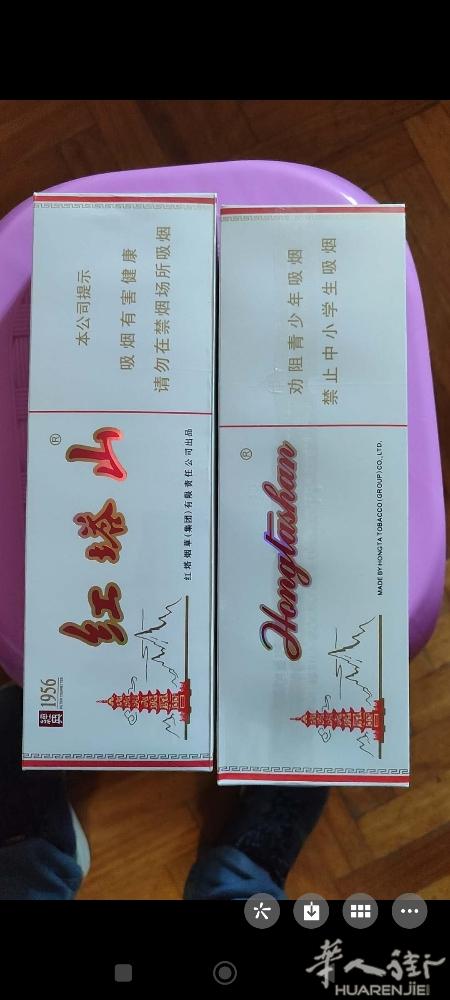 本公司提示
吸烟有害健康
请勿在禁烟场所吸烟
红塔山
®
红塔烟草(集团)有限责任公司出品
1956
劝阻青少年吸烟
禁止中小学生吸烟
Hongtashan
®
MADE BY HONGTA TOBACCO (GROUP) CO., LTD.
華人街
HUARENJIE